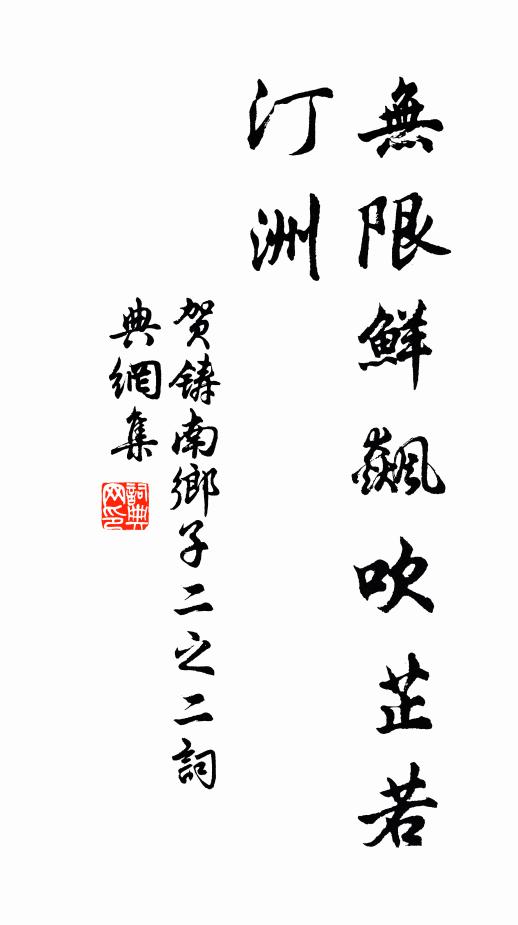 無限鮮飆吹芷若
汀洲
賀鑄南鄉子二之二詞
典網集
詞典網印